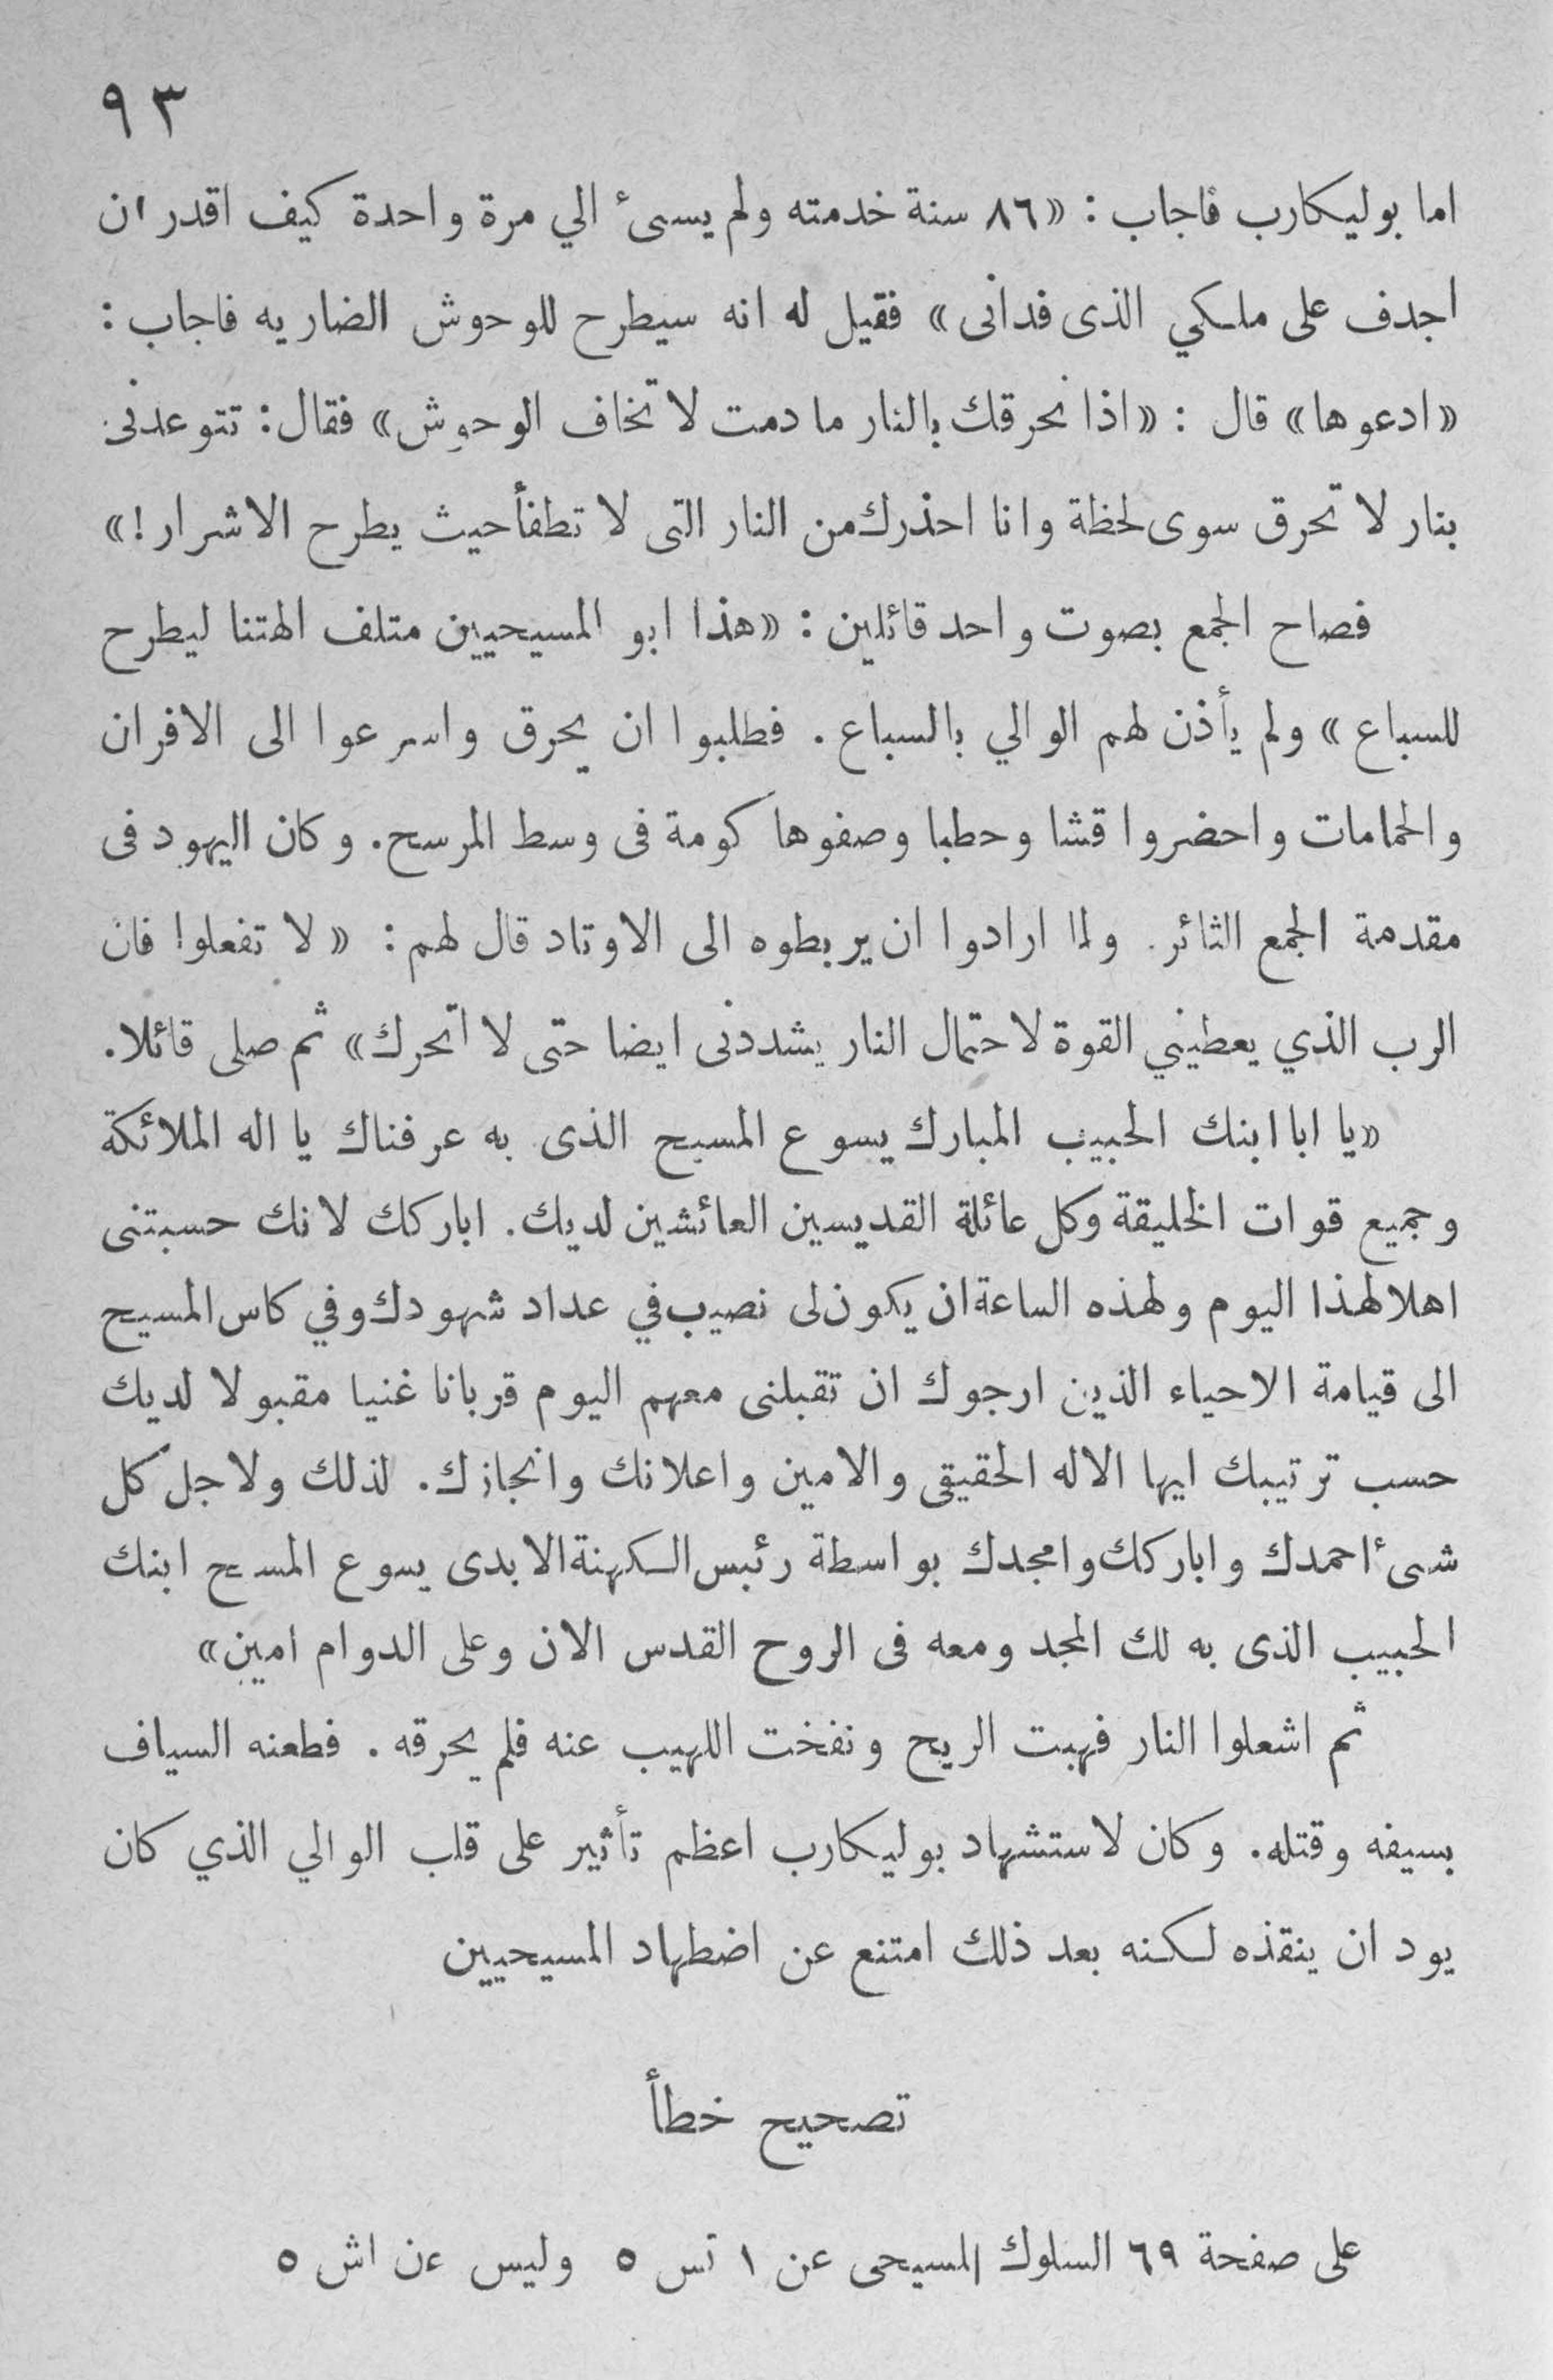 ٩٣
اما بوليكارب فاجاب : «٨٦ سنة خدمته ولم يسىٔ الي مرة واحدة كيف اقدر ان
اجدف على ملكي الذى فدانى» فقيل له انه سيطرح للوحوش الضاريه فاجاب :
«ادعوها» قال : «اذا نحرقك بالنار ما دمت لا تخاف الوحوش» فقال : تتوعدنى
بنار لا تحرق سوى لحظة وانا احذرك من النار التى لا تطفأ حيث يطرح الاشرار !»
فصاح الجمع بصوت واحد قائلين : «هذا ابو المسيحيين متلف الهتنا ليطرح
للسباع» ولم يأذن لهم الوالي بالسباع . فطلبوا ان يحرق واسرعوا الى الافران
والحمامات واحضروا قشا وحطبا وصفوها كومة فى وسط المرسح . وكان اليهود فى
مقدمة الجمع الثائر . ولما ارادوا ان يربطوه الى الاوتاد قال لهم : «لا تفعلوا فان
الرب الذي يعطيني القوة لاحتمال النار يشددنى ايضا حتى لا اتحرك» ثم صلى قائلا .
«يا ابا ابنك الحبيب المبارك يسوع المسيح الذى به عرفناك يا اله الملائكة
وجميع قوات الخليقة وكل عائلة القديسين العائشين لديك . اباركك لانك حسبتنى
اهلا لهذا اليوم ولهذه الساعة ان يكون لى نصيب في عداد شهودك وفي كاس المسيح
الى قيامة الاحياء الذين ارجوك ان تقبلنى معهم اليوم قربانا غنيا مقبولا لديك
حسب ترتيبك ايها الاله الحقيقى والامين واعلانك وانجازك . لذلك ولاجل كل
شىٔ احمدك واباركك وامجدك بواسطة رئيس الكهنة الابدى يسوع المسيح ابنك
الحبيب الذى به لك المجد ومعه فى الروح القدس الان وعلى الدوام امين»
ثم اشعلوا النار فهبت الريح ونفخت اللهيب عنه فلم يحرقه . فطعنه السياف
بسيفه وقتله . وكان لاستشهاد بوليكارب اعظم تأثير على قلب الوالي الذي كان
يود ان ينقذه لكنه بعد ذلك امتنع عن اضطهاد المسيحيين
تصحيح خطأ
على صفحة ٦٩ السلوك المسيحى عن ١ تس ٥ وليس عن اش ٥